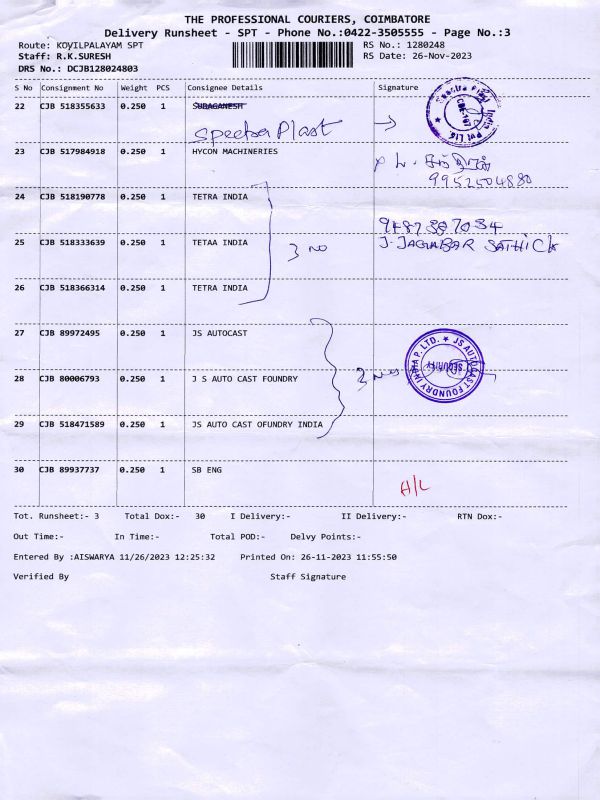 THE PROFESSIONAL COURIERS, COIMBATORE
Delivery Runsheet - SPT - Phone No.:0422-3505555 - Page No.:3
Route: KOVILPALAYAM SPT
Staff: R.K.SURESH
DRS No.: DCJB128024803
RS No.: 1280248
RS Date: 26-Nov-2023
S No Consignment No Weight PCS Consignee Details Signature
22 CJB 518355633 0.250 1 SUBAGANESH
Spectra Plast
Spectra Plast India Pvt Ltd
23 CJB 517984918 0.250 1 HYCON MACHINERIES
9952504880
24 CJB 518190778 0.250 1 TETRA INDIA
9487387034
25 CJB 518333639 0.250 1 TETAA INDIA 3 no J. JAGHABAR SATHICK
26 CJB 518366314 0.250 1 TETRA INDIA
27 CJB 89972495 0.250 1 JS AUTOCAST
28 CJB 80006793 0.250 1 J S AUTO CAST FOUNDRY 3 nos
JS AUTOCAST FOUNDRY INDIA P. LTD.
SECURITY
29 CJB 518471589 0.250 1 JS AUTO CAST OFUNDRY INDIA
30 CJB 89937737 0.250 1 SB ENG
A/L
Tot. Runsheet:- 3 Total Dox:- 30 I Delivery:- II Delivery:- RTN Dox:-
Out Time:- In Time:- Total POD:- Delvy Points:-
Entered By :AISWARYA 11/26/2023 12:25:32 Printed On: 26-11-2023 11:55:50
Verified By Staff Signature